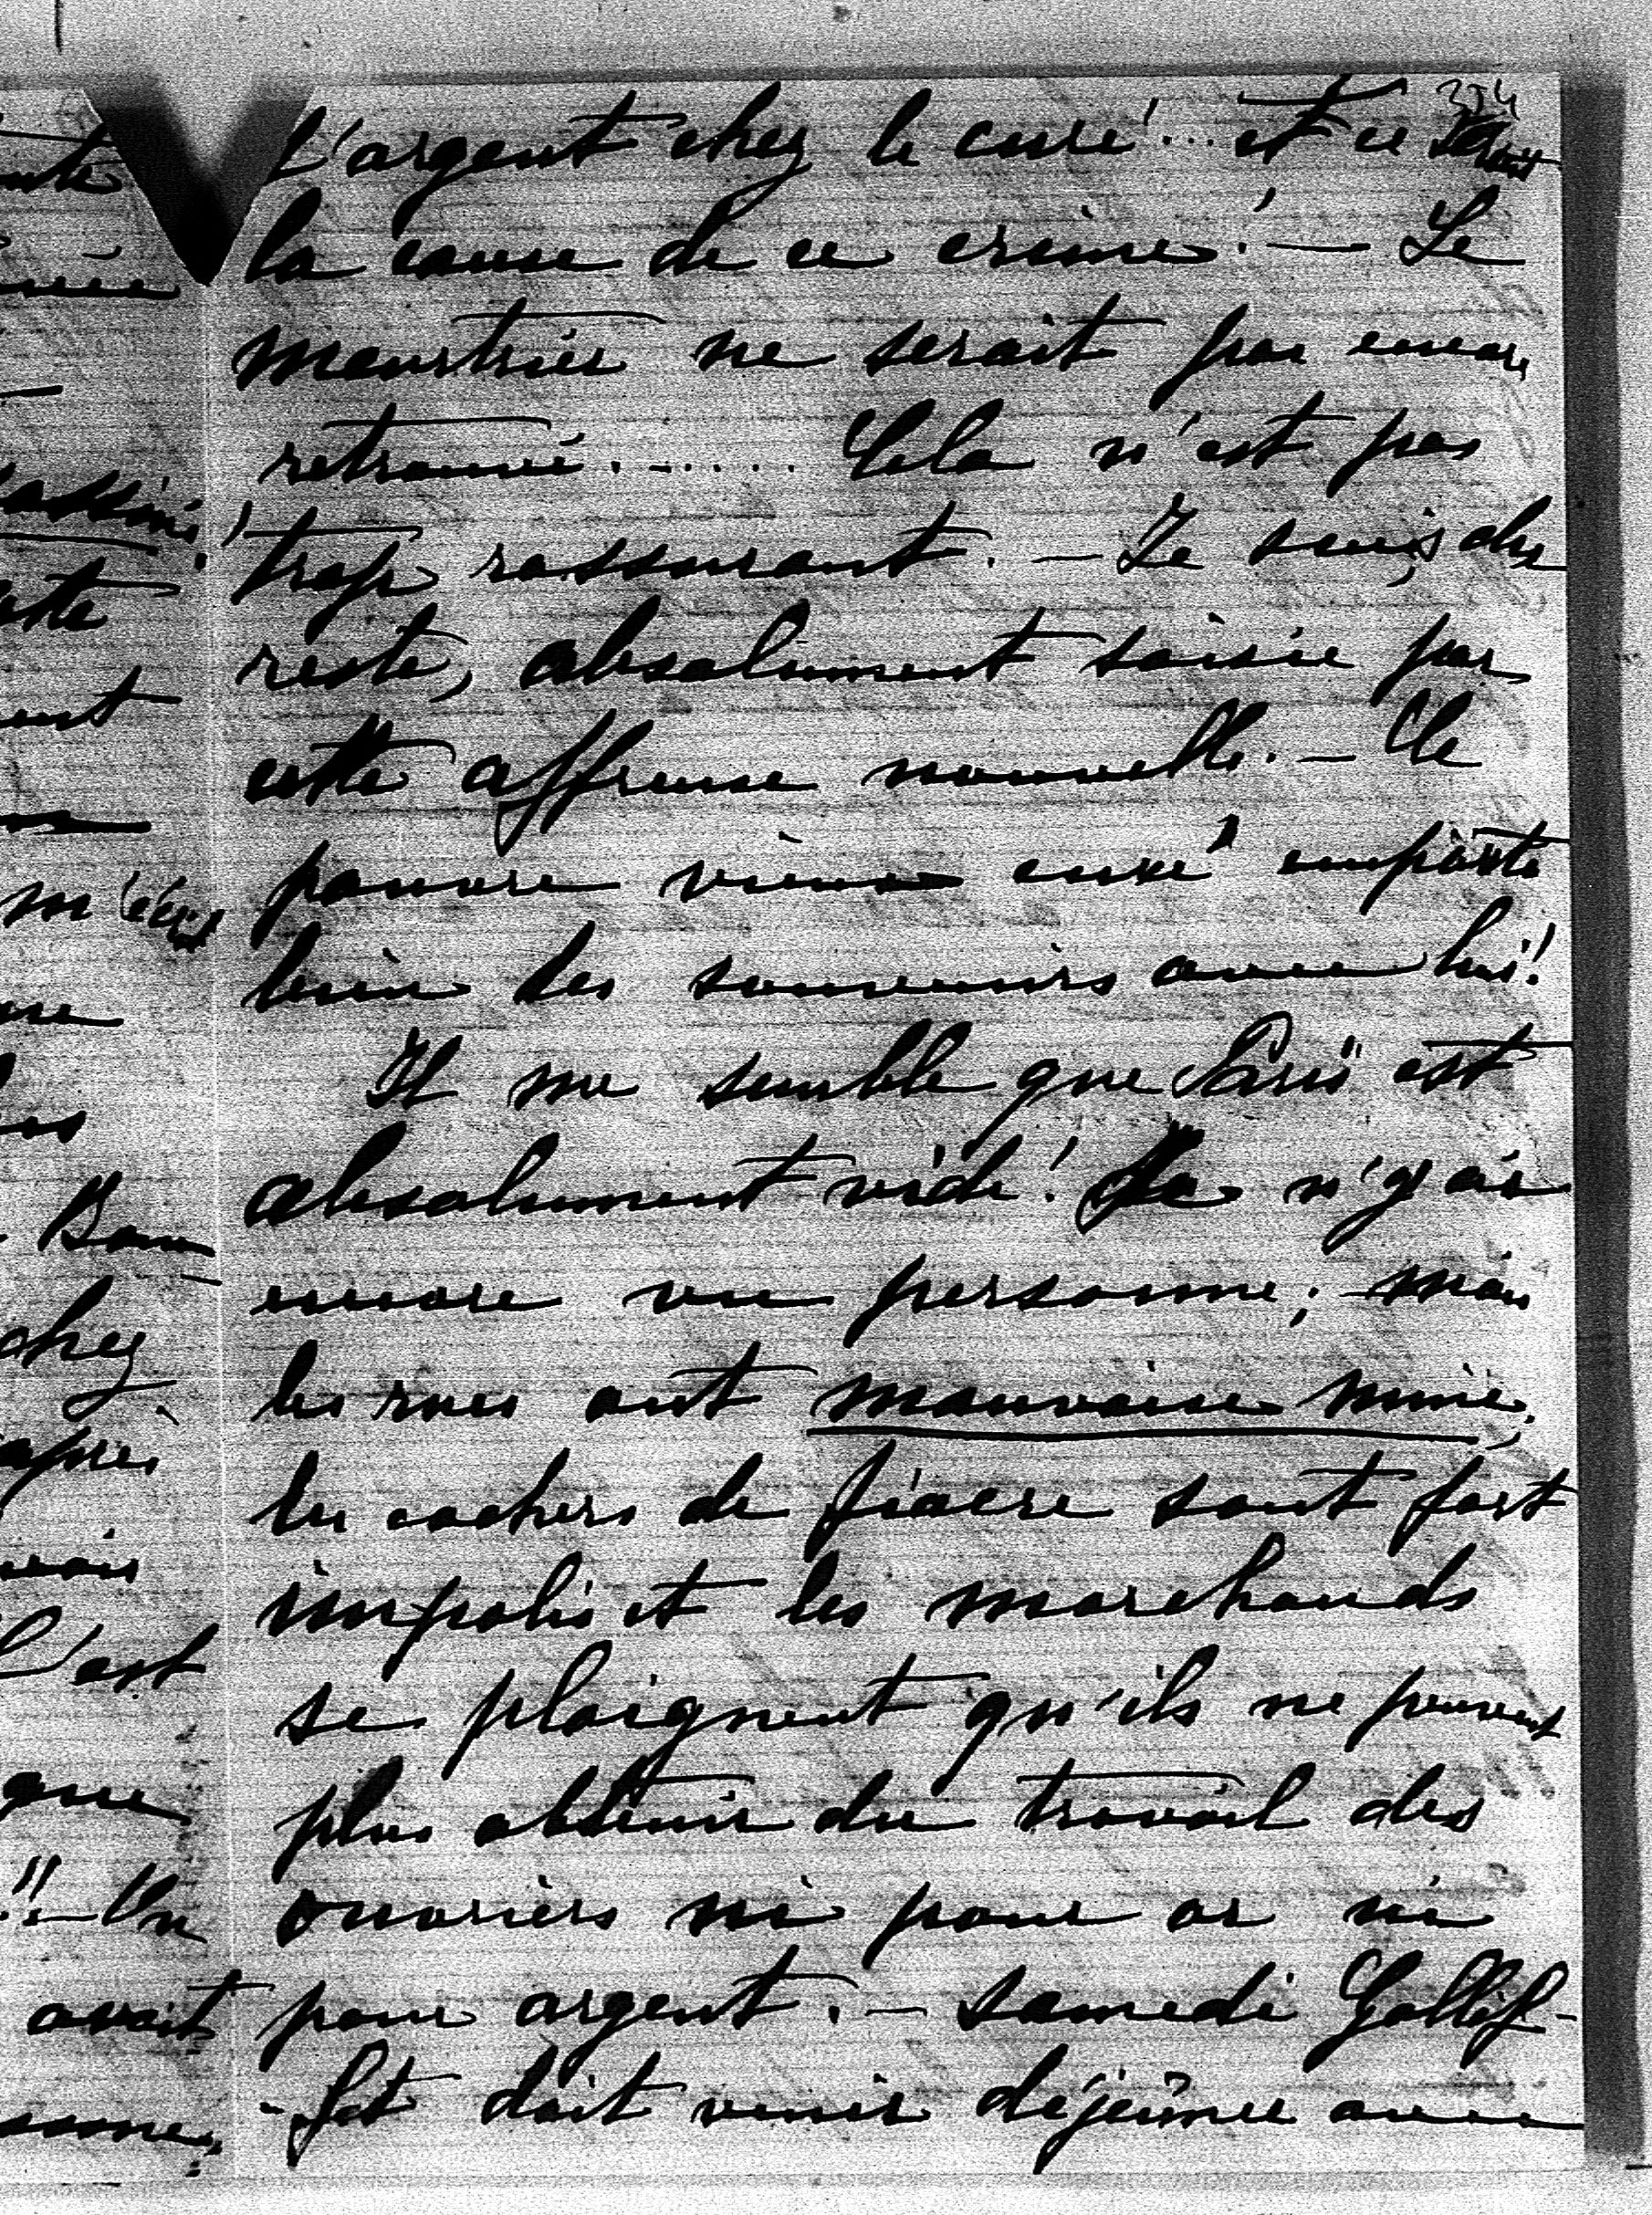 354
l'argent chez le curé... et ce serait
la cause de ce crime! — Le
meurtrier ne serait pas encore
retrouvé....... Cela n'est pas
trop rassurant. — Je suis, du
reste, absolument saisie par
cette affreuse nouvelle. — Ce
pauvre vieux curé emporte
bien des souvenirs avec lui!
Il me semble que Paris est
absolument vide! Je n'y ai
encore vu personne; mais
les rues ont mauvaise mine,
les cochers de fiacre sont fort
impolis et les marchands
se plaignent qu'ils ne peuvent
plus obtenir du travail des
ouvriers ni pour or ni
pour argent. — Samedi Gallif-
-fet doit venir déjeûner avec
m'écrit
chez
après
C'est
que
!! — Un
avait